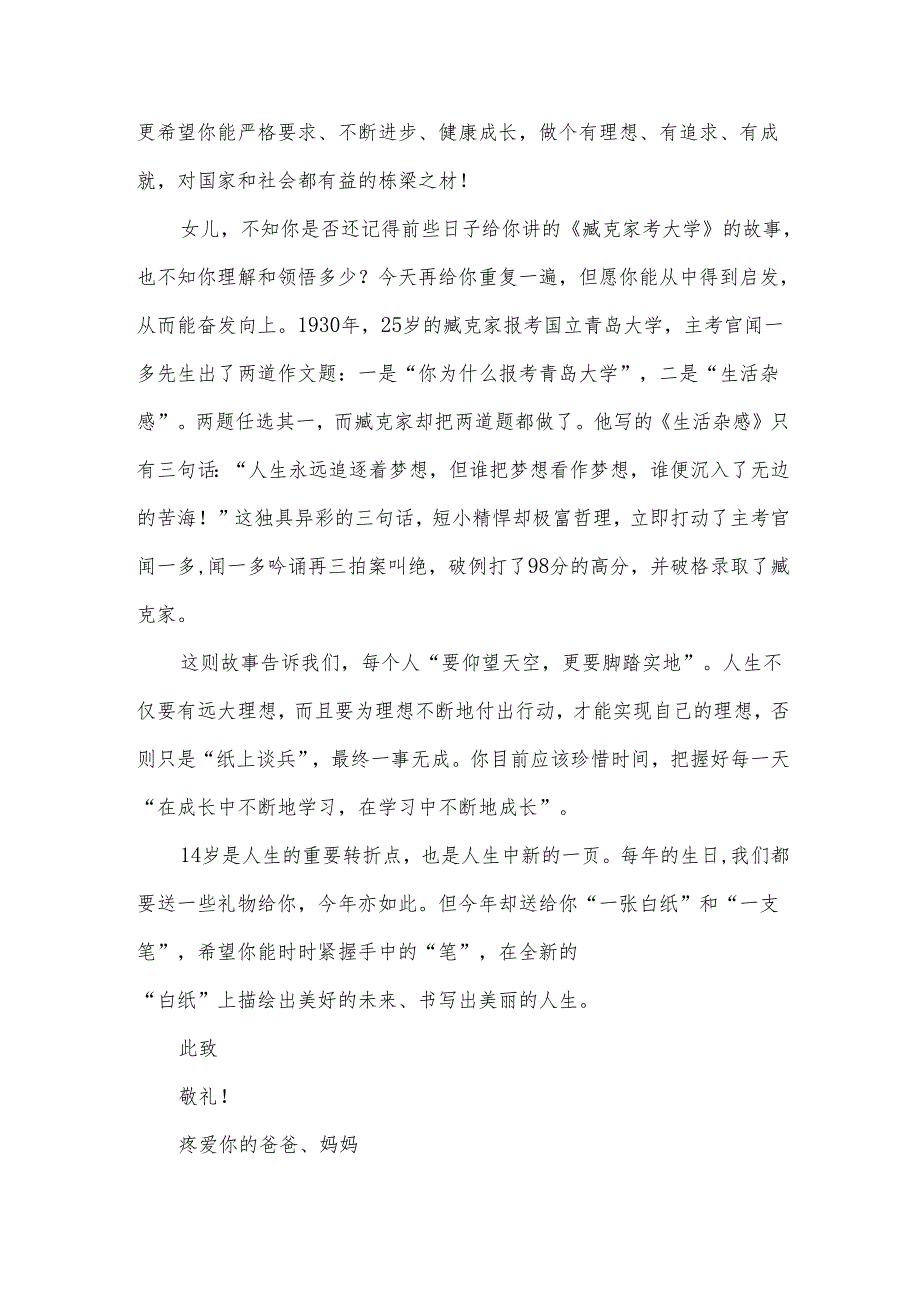 更希望你能严格要求、不断进步、健康成长，做个有理想、有追求、有成
就，对国家和社会都有益的栋梁之材！
女儿，不知你是否还记得前些日子给你讲的《臧克家考大学》的故事，
也不知你理解和领悟多少？今天再给你重复一遍，但愿你能从中得到启发，
从而能奋发向上。1930年，25岁的臧克家报考国立青岛大学，主考官闻一
多先生出了两道作文题：一是“你为什么报考青岛大学”，二是“生活杂
感”。两题任选其一，而臧克家却把两道题都做了。他写的《生活杂感》只
有三句话：“人生永远追逐着梦想，但谁把梦想看作梦想，谁便沉入了无边
的苦海！”这独具异彩的三句话，短小精悍却极富哲理，立即打动了主考官
闻一多,闻一多吟诵再三拍案叫绝，破例打了98分的高分，并破格录取了臧
克家。
这则故事告诉我们，每个人“要仰望天空，更要脚踏实地”。人生不
仅要有远大理想，而且要为理想不断地付出行动，才能实现自己的理想，否
则只是“纸上谈兵”，最终一事无成。你目前应该珍惜时间，把握好每一天
“在成长中不断地学习，在学习中不断地成长”。
14岁是人生的重要转折点，也是人生中新的一页。每年的生日,我们都
要送一些礼物给你，今年亦如此。但今年却送给你“一张白纸”和“一支
笔”，希望你能时时紧握手中的“笔”，在全新的
“白纸”上描绘出美好的未来、书写出美丽的人生。
此致
敬礼！
疼爱你的爸爸、妈妈